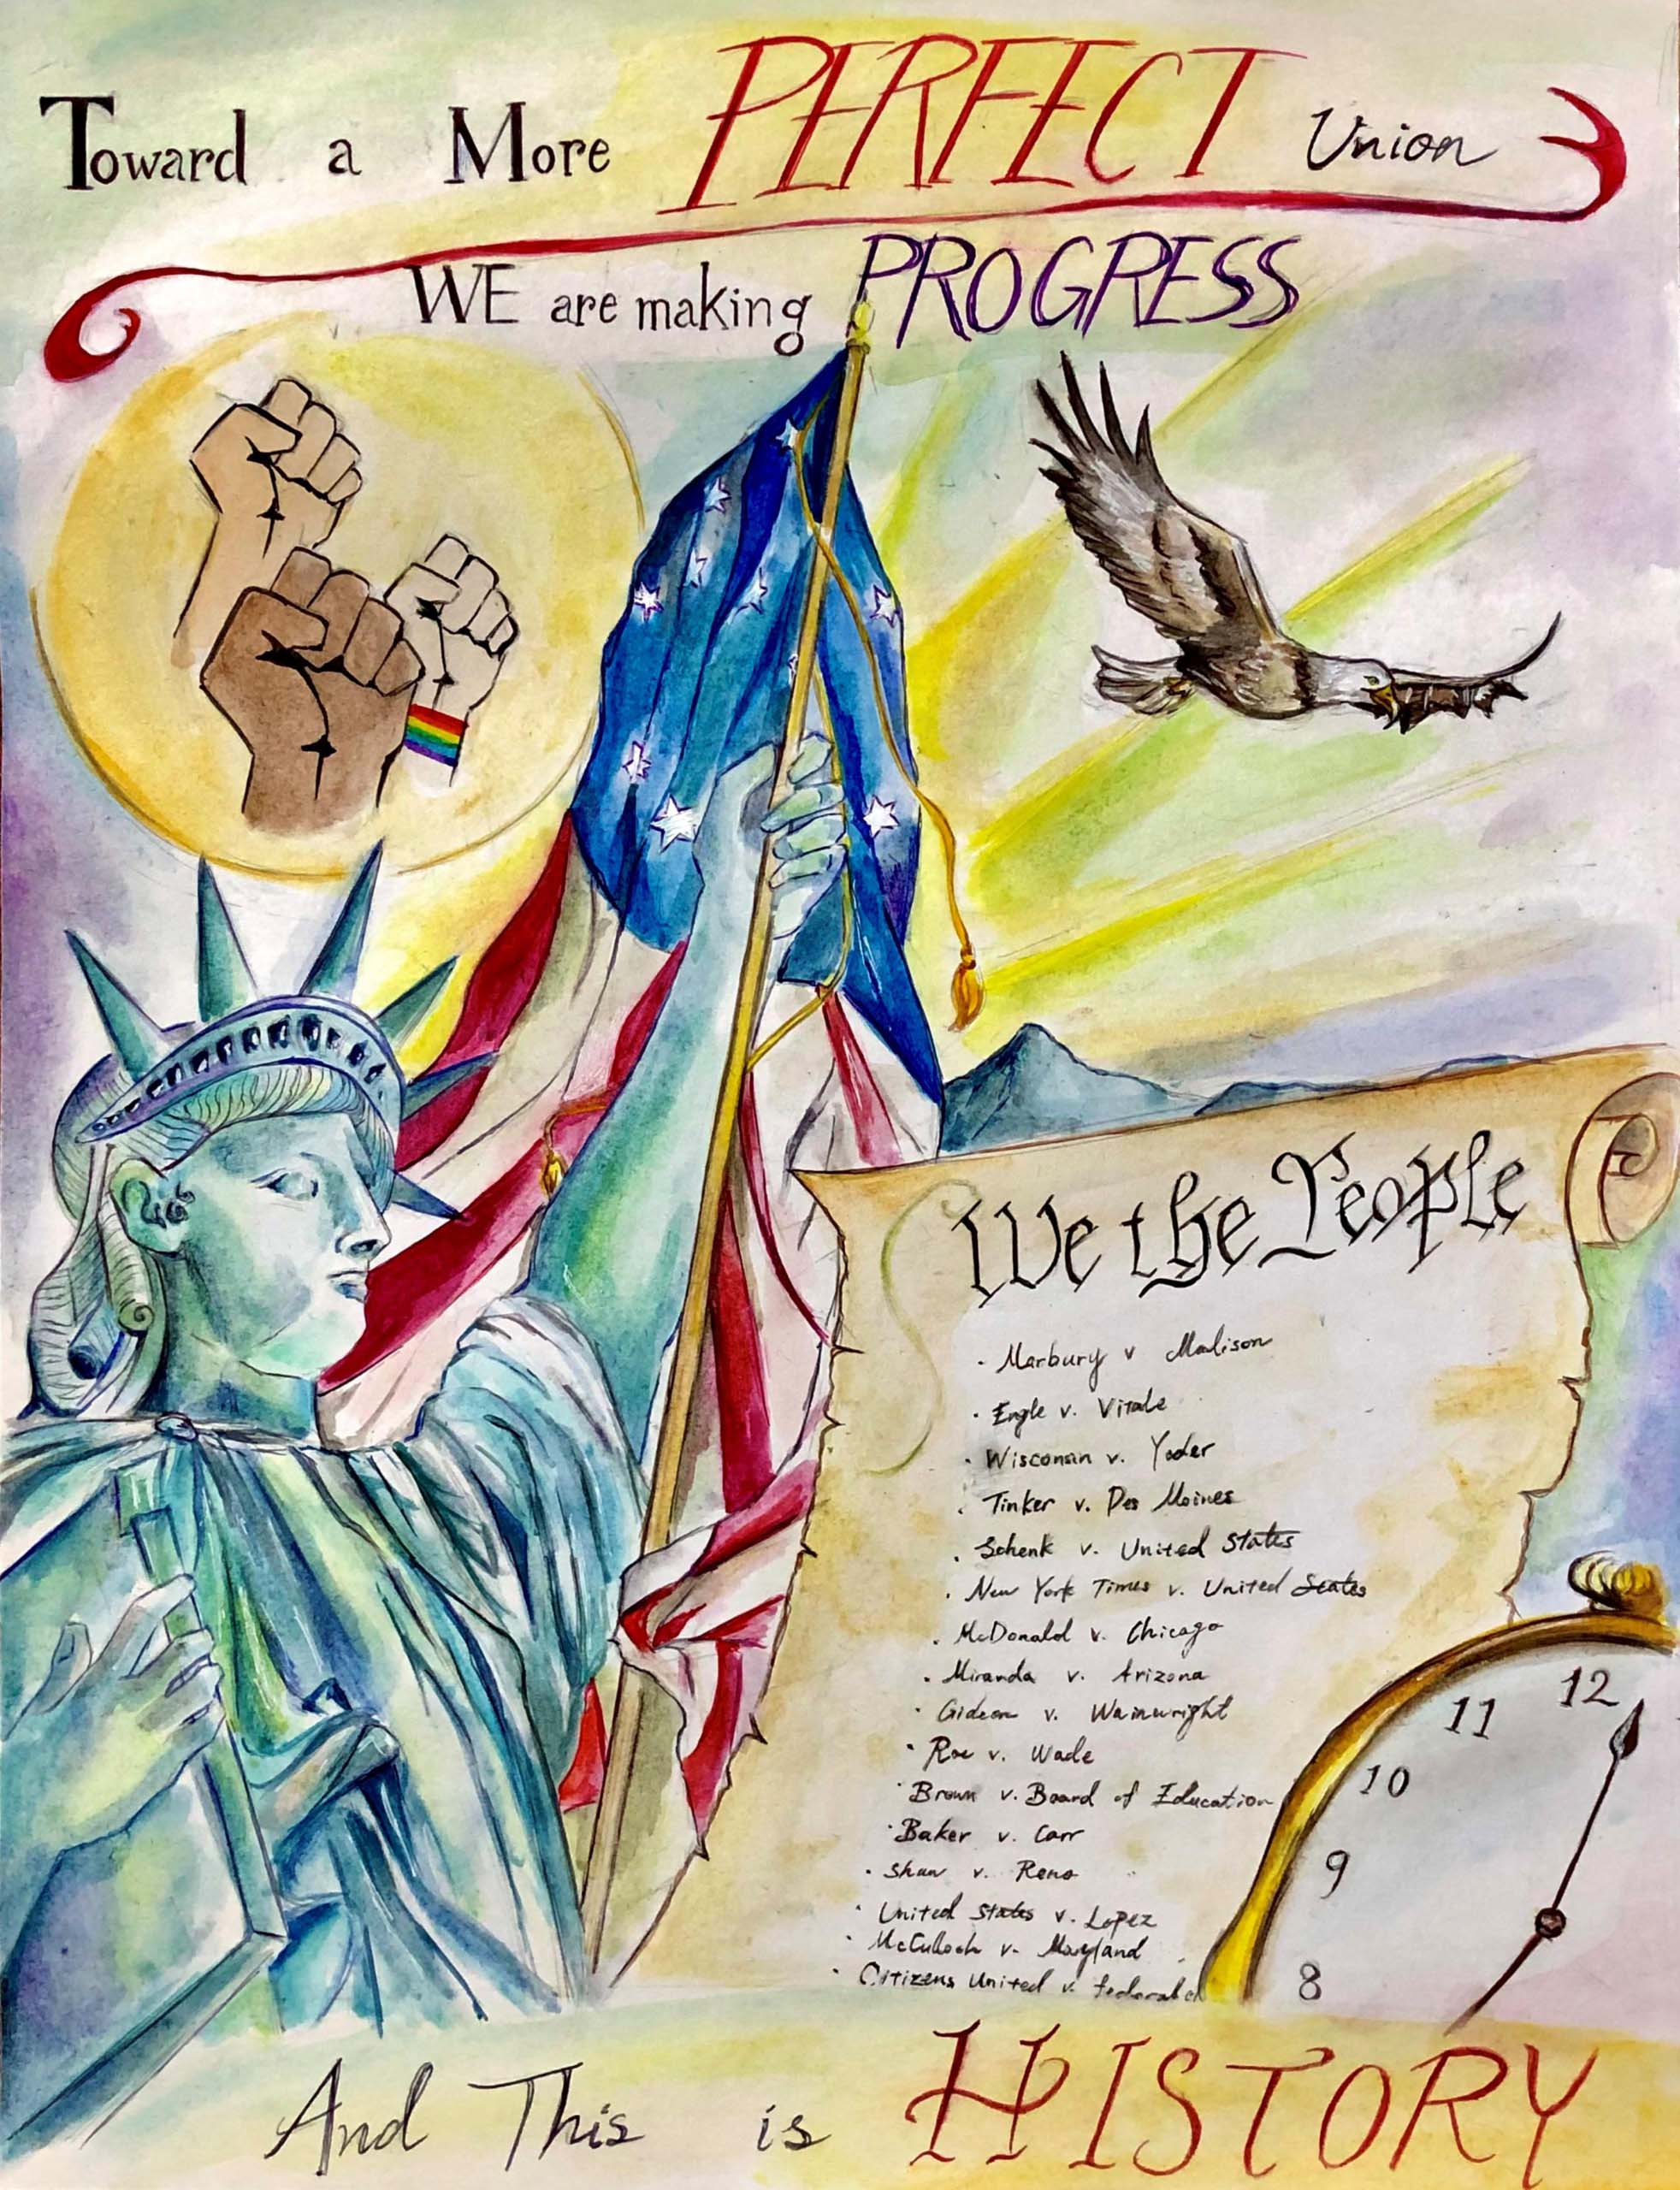 Toward a More PERFECT Union
WE are making PROGRESS
We the People
· Marbury v Madison
· Engle v. Vitale
· Wisconsin v. Yoder
· Tinker v. Des Moines
· Schenk v. United States
· New York Times v. United States
· McDonald v. Chicago
· Miranda v. Arizona
· Gideon v. Wainwright
· Roe v. Wade
· Brown v. Board of Education
· Baker v. Carr
· Shaw v. Reno
· United States v. Lopez
· McCulloch v. Maryland
· Citizens United v. federal
12
11
10
9
8
And This is HISTORY